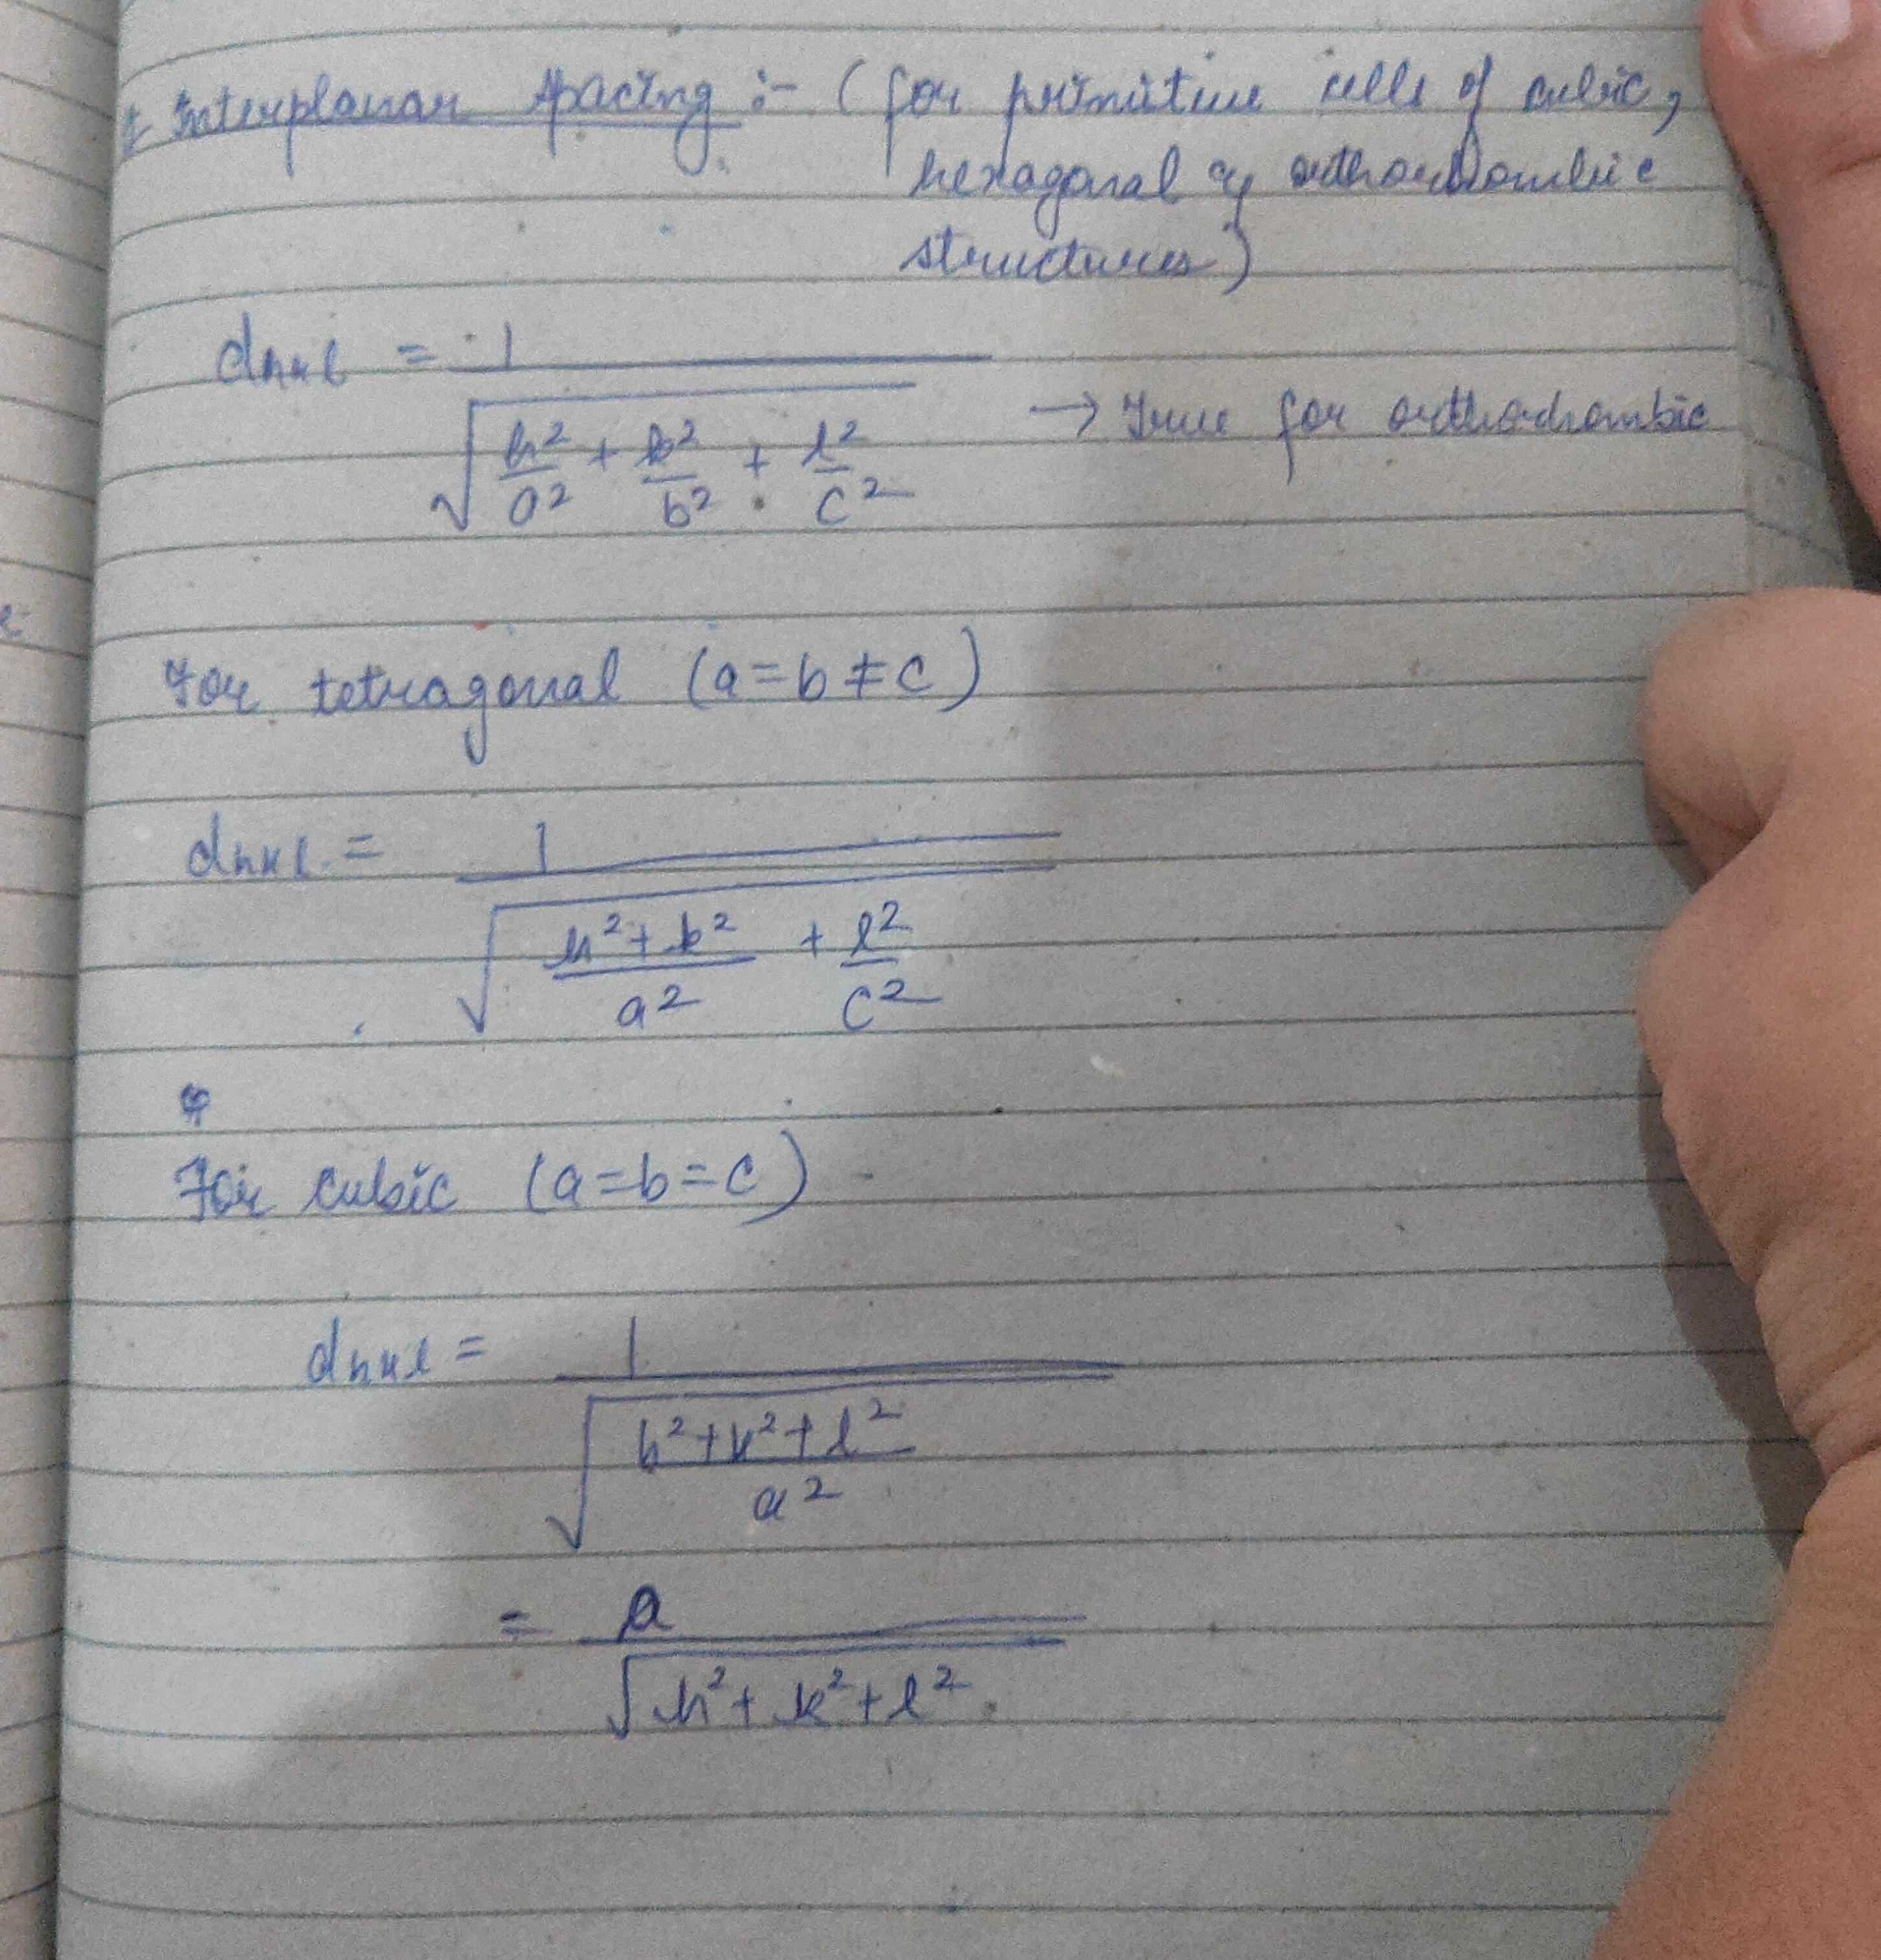 * Interplanar spacing :- (for primitive cells of cubic,
hexagonal & orthorhombic
structures)
dhkl = 1 / √(h²/a² + k²/b² + l²/c²) → True for orthorhombic
For tetragonal (a=b≠c)
dhkl = 1 / √((h²+k²)/a² + l²/c²)
For cubic (a=b=c)
dhkl = 1 / √((h²+k²+l²)/a²)
= a / √(h²+k²+l²)